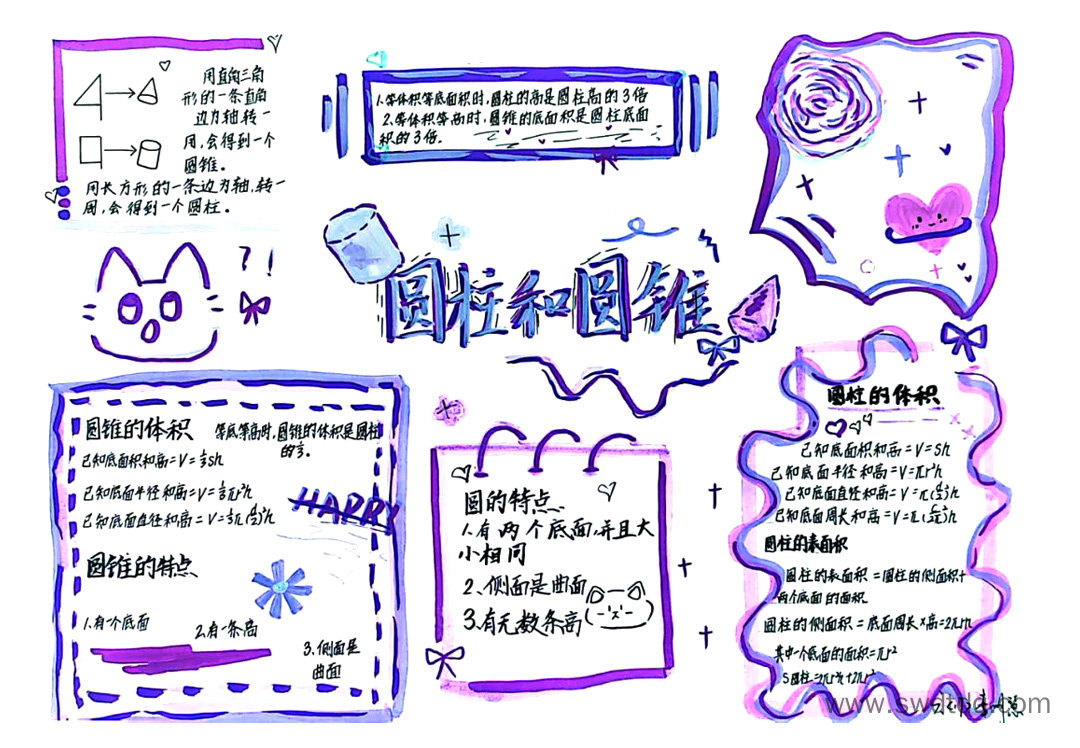 用直角三角
形的一条直角
边为轴转一
周,会得到一个
圆锥。
用长方形的一条边为轴,转一
周,会得到一个圆柱。
1.等体积等底面积时,圆柱的高是圆柱高的3倍
2.等体积等高时,圆锥的底面积是圆柱底面
积的3倍.
?!
圆柱和圆锥
圆锥的体积
等底等高时,圆锥的体积是圆柱
的⅓。
已知底面积和高=V=⅓Sh
已知底面半径和高=V=⅓πr²h
已知底面直径和高=V=⅓π(d/2)²h
HAPPY
圆锥的特点
1.有一个底面
2.有一条高
3.侧面是
曲面
圆的特点
1.有两个底面,并且大
小相同
2、侧面是曲面
3.有无数条高
圆柱的体积
已知底面积和高=V=Sh
已知底面半径和高=V=πr²h
已知底面直径和高=V=π(d/2)²h
已知底面周长和高=V=π(c/2π)²h
圆柱的表面积
圆柱的表面积=圆柱的侧面积+
两个底面的面积
圆柱的侧面积=底面周长×高=2πrh
其中一个底面的面积=πr²
S圆柱=2πrh+2πr²
www.swdtpg.com